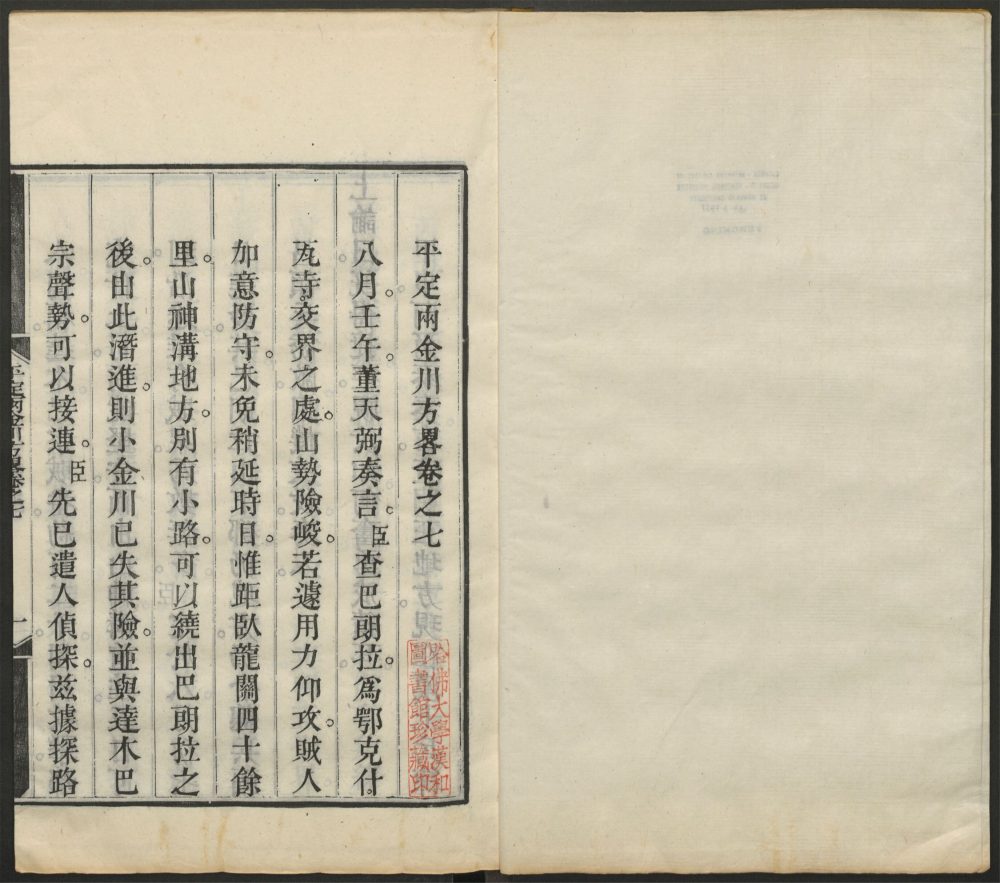 平定兩金川方畧卷之七
八月。壬午。董天弼奏言。臣查巴朗拉。爲鄂克什。
瓦寺。交界之處。山勢險峻。若遽用力仰攻。賊人
加意防守。未免稍延時日。惟距臥龍關四十餘
里。山神溝地方。別有小路。可以繞出巴朗拉之
後。由此潛進。則小金川已失其險。並與達木巴
宗聲勢。可以接連。臣先已遣人偵探。茲據探路
哈佛大學漢和
圖書館珍藏印
平定兩金川方畧卷之七
一